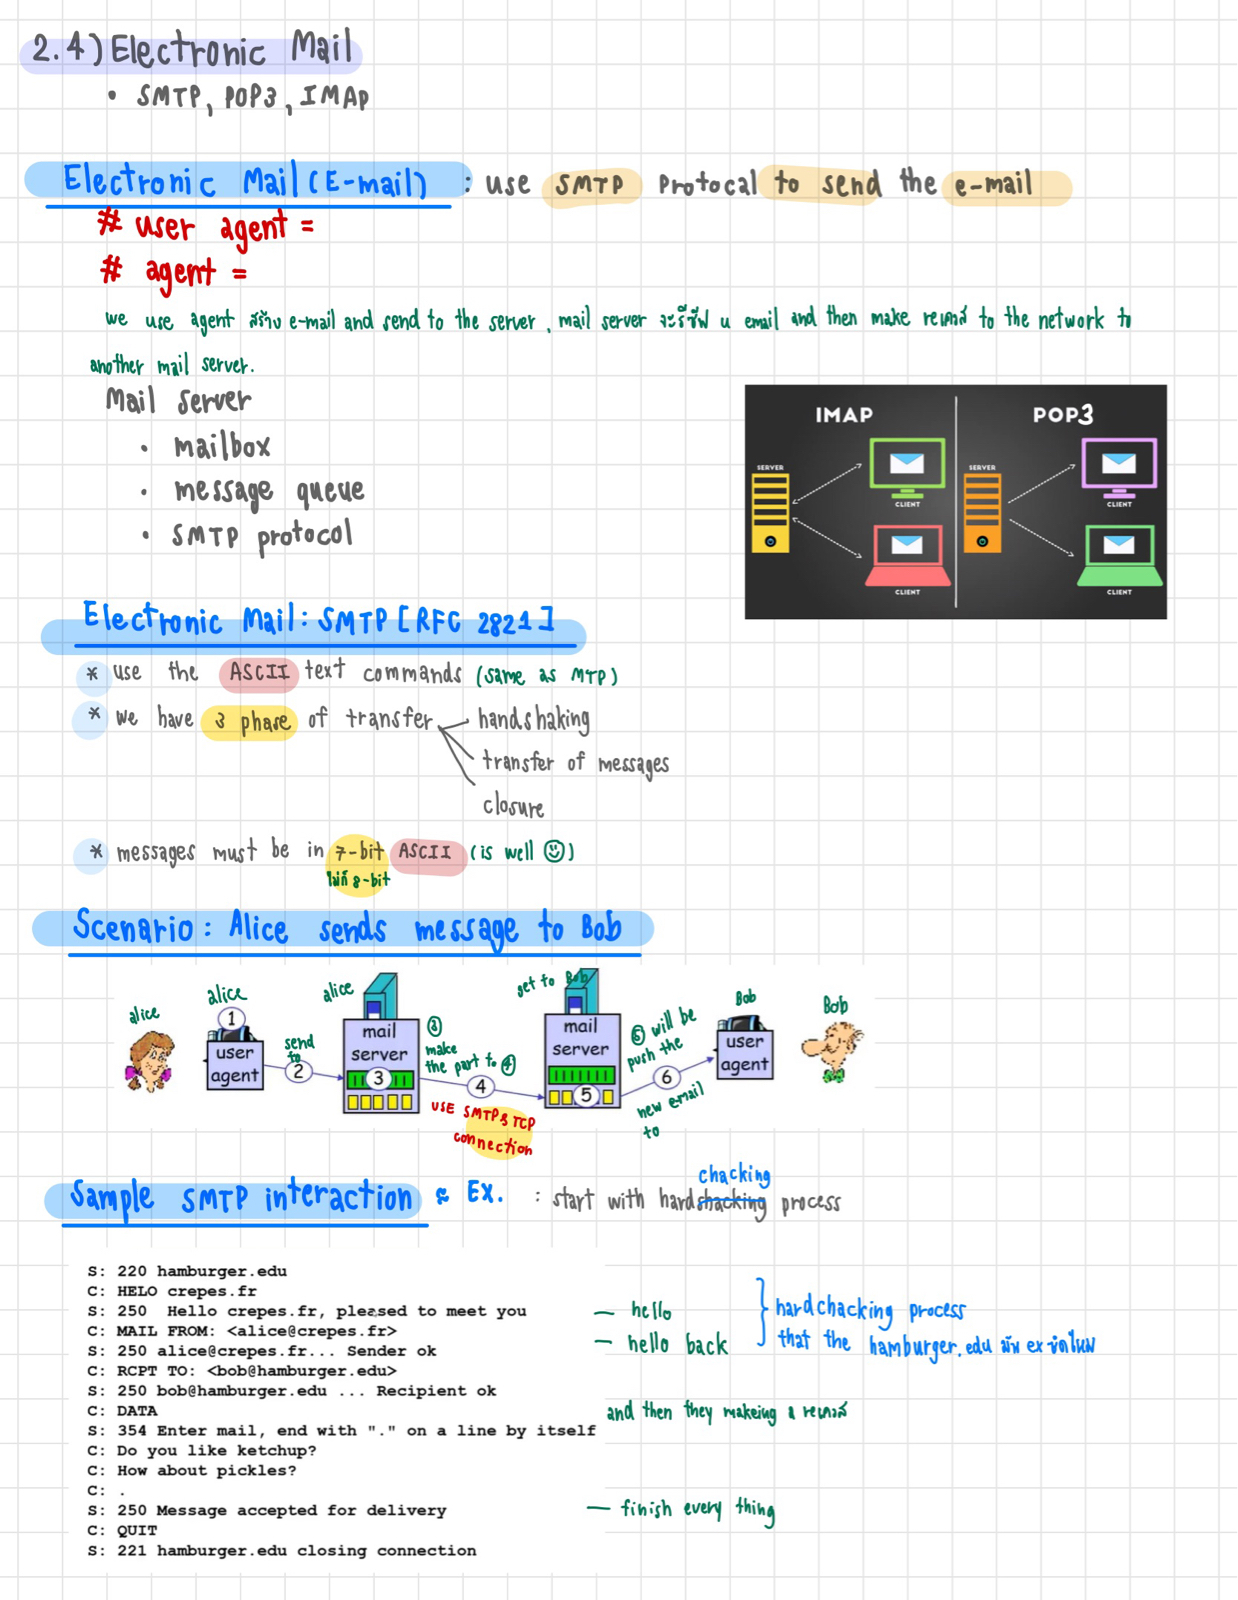 2.4) Electronic Mail
• SMTP, POP3, IMAP
Electronic Mail (E-mail) : use SMTP Protocal to send the e-mail
# user agent =
# agent =
we use agent สร้าง e-mail and send to the server, mail server จะรีซีฟ u email and then make รีเควส to the network to
another mail server.
Mail server
• mailbox
• message queue
• SMTP protocol
IMAP
POP3
SERVER
CLIENT
CLIENT
SERVER
CLIENT
CLIENT
Electronic Mail: SMTP [RFC 2821]
* use the ASCII text commands (same as MTP)
* we have 3 phase of transfer
handshaking
transfer of messages
closure
* messages must be in 7-bit ASCII (is well ☺)
8-bit
Scenario: Alice sends message to Bob
alice
alice
1
user
agent
send
to
2
alice
mail
server
3
③
make
the part to ④
4
USE SMTP & TCP
connection
get to Bob
mail
server
5
⑤ will be
push the
6
new email
to
Bob
user
agent
Bob
Sample SMTP interaction ≈ Ex. : start with hardshacking process
chacking
S: 220 hamburger.edu
C: HELO crepes.fr
S: 250  Hello crepes.fr, pleased to meet you
C: MAIL FROM: <alice@crepes.fr>
S: 250 alice@crepes.fr... Sender ok
C: RCPT TO: <bob@hamburger.edu>
S: 250 bob@hamburger.edu ... Recipient ok
C: DATA
S: 354 Enter mail, end with "." on a line by itself
C: Do you like ketchup?
C: How about pickles?
C: .
S: 250 Message accepted for delivery
C: QUIT
S: 221 hamburger.edu closing connection
— hello
— hello back
hardchacking process
that the hamburger.edu มัน ex
and then they makeing a รีเควส
— finish every thing